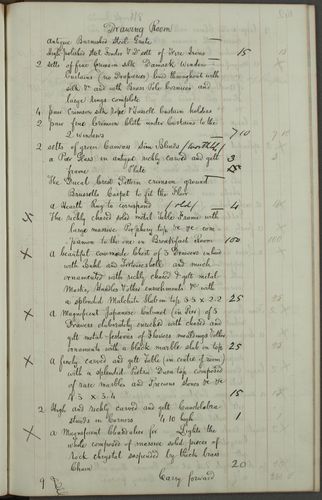 Drawing Room
Antique Burnished Steel Grate —
High polished Steel Fender & 2nd sett of Fire Irons 15
2 setts of fine Crimson silk Damask Window
Curtains (no Draperies) lined throughout with
silk &c and with Brass Pole Cornices and
large rings complete
4 pair Crimson silk Rope & Tassell Curtain holders
2 pair fine Crimson Cloth under Curtains to the
2 windows — 710
2 setts of green Canvas Sun Blinds (worthless)
a Pier Glass in antique richly carved and gilt 3
frame Plate
The Ducal Crest Pattern crimson ground
Brussells Carpet to fit the Flat
a Hearth Rug to correspond (old) — 4
The richly chased solid metal Table Frame with
large massive Porphyry top &c &c com-
panion to the one in Breakfast Room 100
a beautiful cow-made Chest of 3 Drawers inlaid
with Buhl and Tortoiseshell and much
ornamented with richly chased & gilt metal
Masks, Handles & other enrichments &c with
a splendid Malachite Slab on top 3.3 x 2.2 25
a Magnificent Japanese Cabinet (in Tier) of 3
Drawers elaborately enriched with chased and
gilt metal festoons of Flowers mouldings & other
ornaments with a black marble slab on top 25
a finely carved and gilt Table (in centre of room)
with a splendid Pietri Dura top composed
of rare marbles and Precious stones &c &c
4.3 x 3.4 15
2 High and richly carved and gilt Candelabra
stands in Corners 4.10 high 1
a Magnificent Chandelier for Lights the
whole composed of massive solid pieces of
rock chrystal suspended by thick brass
Chain 20
9 Carry forward